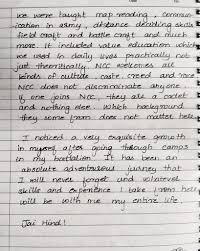 we were taught map reading, commun-
ication in army, distance climbing skills
field craft and battle craft and much
more. It included value education which
we used in daily lives practically not
just theoritically. NCC welcomes all
kinds of culture, caste, creed and race
NCC does not discriminate anyone.
if one joins NCC, they are a cadet
and nothing else. Which background
they come from does not matter here.
I noticed a very exquisite growth
in myself after going through camps
in my battalion. It has been an
absolute adventurous journey that
I will never forget and whatever
skills and experience I take from here
will be with me my entire life.
Jai Hind!